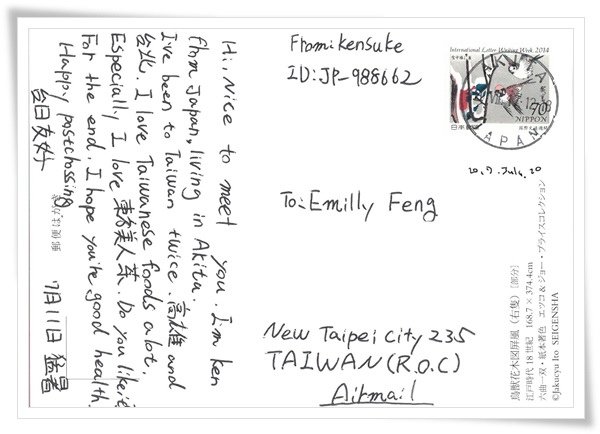 Hi, Nice to meet you. I'm ken
from Japan, living in Akita.
I've been to Taiwan twice. 高雄 and
台北. I love Taiwanese foods a lot.
Especially I love 東方美人茶. Do you like it
For the end, I hope you're good health.
Happy postcrossing
台日友好
7月11日 猛暑
郵便はがき
From: kensuke
ID: JP-988662
International Letter Writing Week, 2014
70
NIPPON
日本郵便
AKITA
JAPAN
20.7. July. 20
To: Emilly Feng
New Taipei City 235
TAIWAN (R.O.C)
Airmail
鳥獣花木図屏風（右隻）［部分］
江戸時代 18世紀 168.7 × 374.4cm
六曲一双・紙本著色 エツコ & ジョー・プライスコレクション
©Jakucyu Ito SEIGENSHA